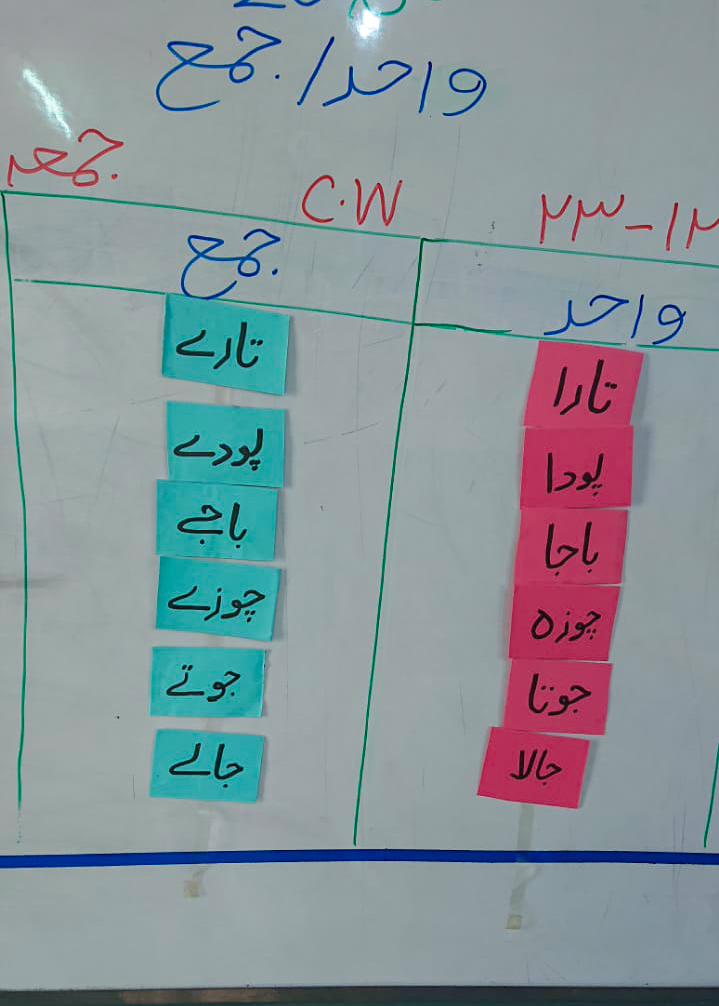 واحد/جمع
۱۲-۲۳ C.W جمعہ
واحد جمع
تارا تارے
پودا پودے
باجا باجے
چوزہ چوزے
جوتا جوتے
جالا جالے